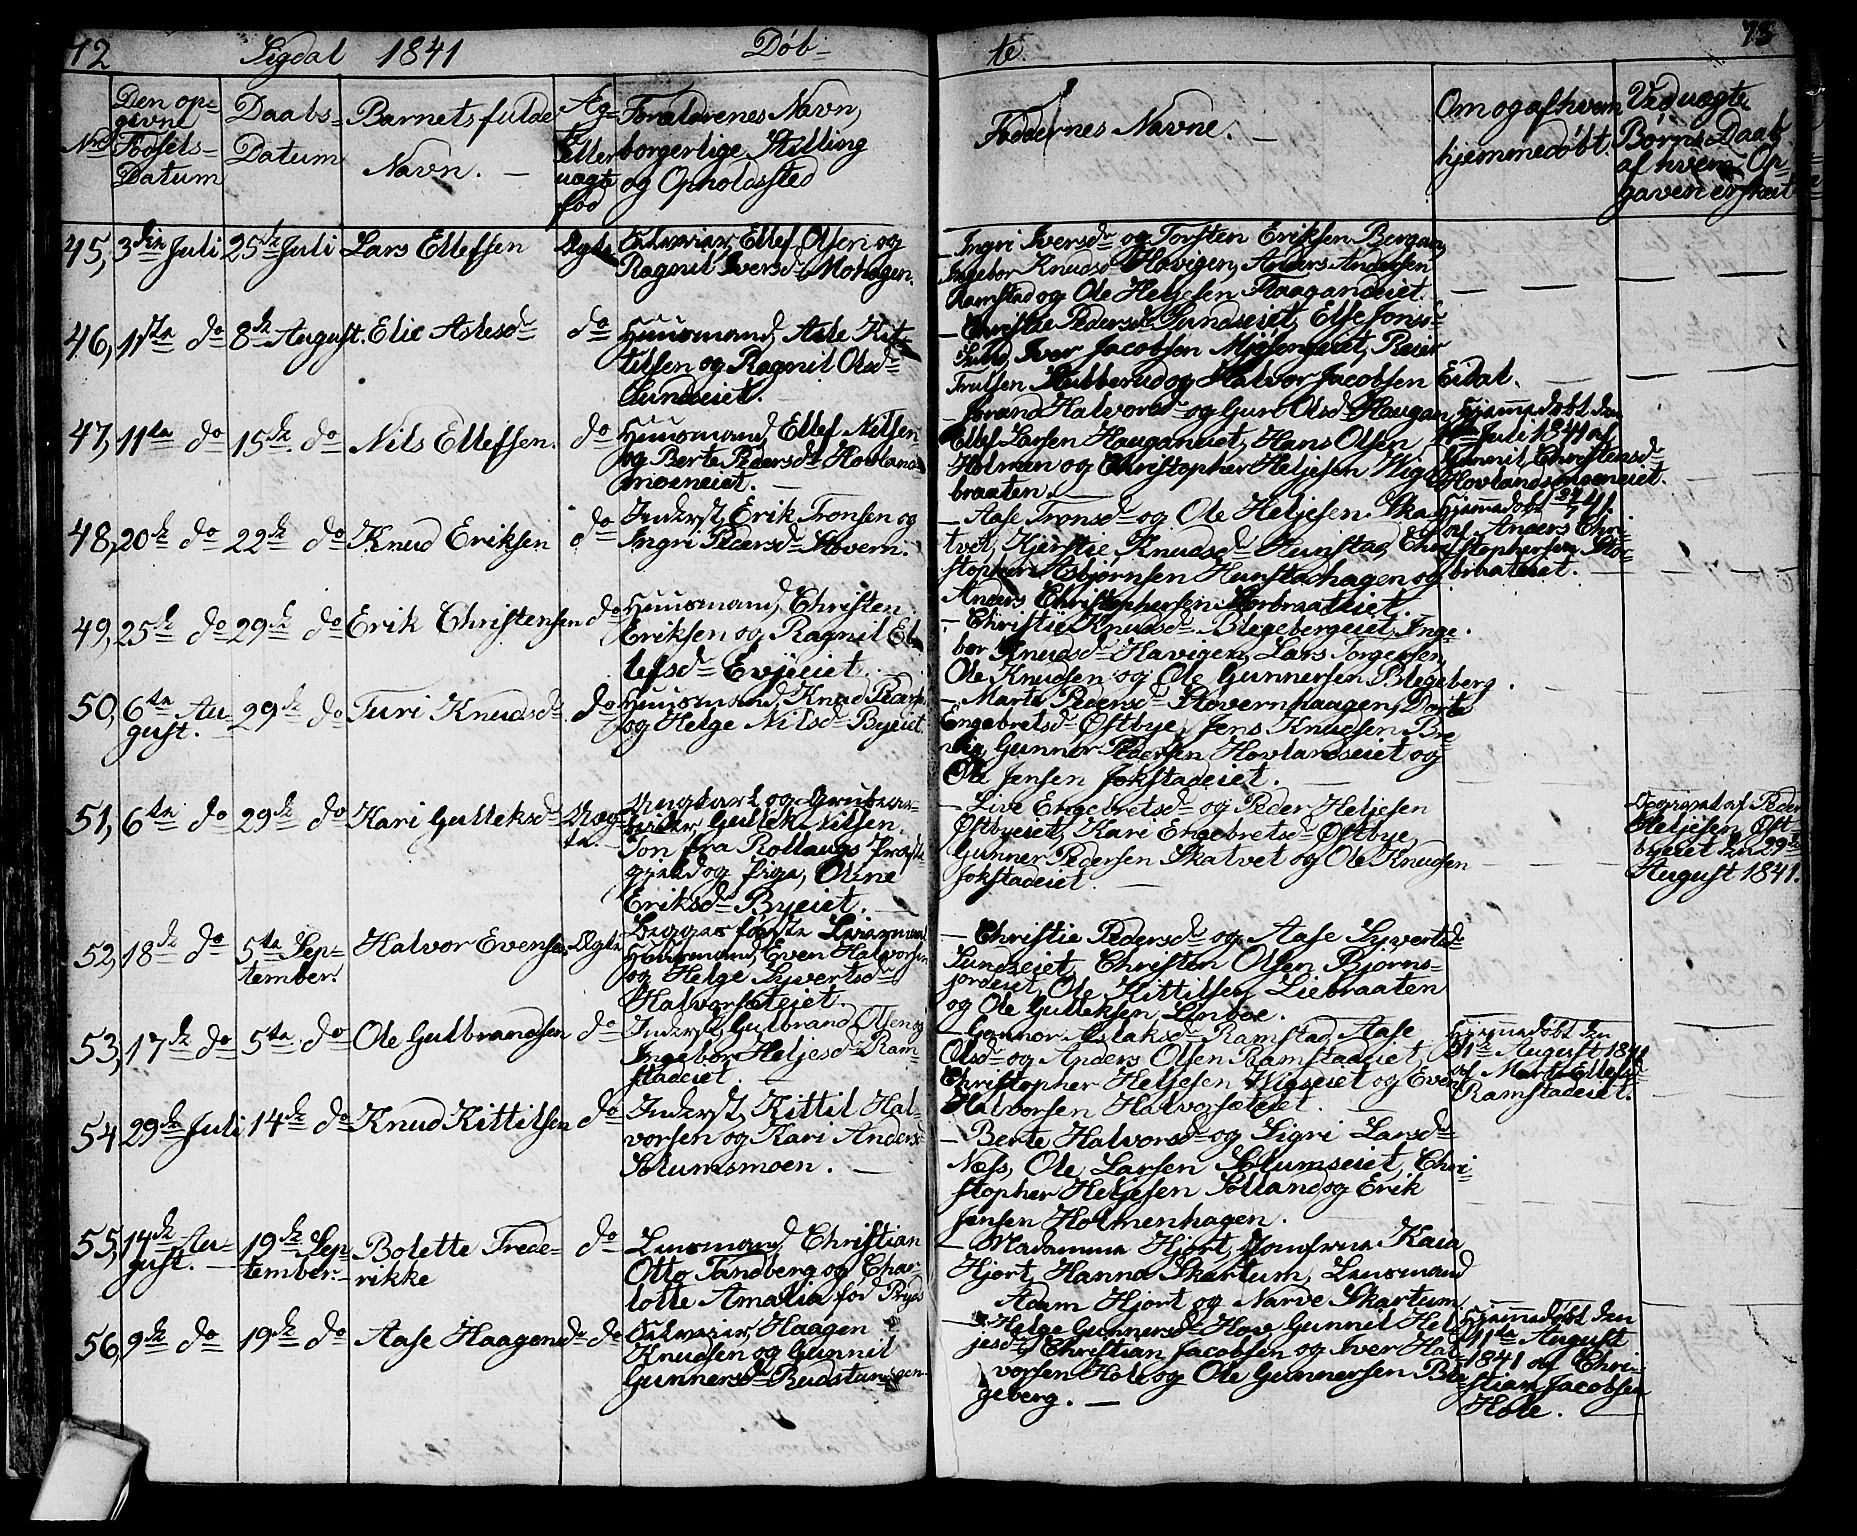 72 Sigdal 1841 Døb-
te. 73
Nro
Den op-
givne
Fødsels-
Datum
Daabs-
Datum
Barnets fulde
Navn. —
Æg-
te
eller
uægte
fød
Forældrenes Navn,
borgerlige Stilling
og Opholdssted
Faddernes Navne. —
Om og af hvem
hjemmedøbt.
Ved uægte
Børns Daab
af hvem Op-
gaven er skeet
45, 3die Juli 25de Juli Lars Ellefsen Ægte
Ellef Olsen og
Ragnil Iversdr Mohagen.
— Ingri Iversdr og Torsten Eriksen Bergan,
Ingebor Knudsdr Havigen, Anders Andersen
Ramstad og Ole Heljesen Raaganeiet.
46, 11te do 8de August. Elie Aslesdr do
Huusmand, Asle Kit-
tilsen og Ragnil Olsdr
Sundseiet.
— Christie Pedersdr Sundseiet, Else Jonsdr
Iver Jacobsen Mjøseneiet, Reier
Trulsen Hulberud og Halvor Jacobsen Eidal.
47, 11te do 15de do Nils Ellefsen. do
Huusmand, Ellef Nilsen
og Berte Pedersdr Hovlands-
moeneiet. —
— Jørand Halvorsdr og Guri Olsdr Haugan,
Ellef Larsen Hauganeiet, Hans Olsen
Holmen og Christopher Heljesen Wige-
braaten. —
Hjemmedøbt den
Juli 1841 af
Gunnil Christensdr
Hovlandsmoeneiet.
48, 20de do 22de do Knud Eriksen do
Inderst, Erik Tronsen og
Ingri Pedersdr Stovern.
— Aase Tronsdr og Ole Heljesen Ska-
tvet, Kjerstie Knudsdr Hunstad, Chri-
stopher Asbjørnsen Hunstadhagen og
Anders Christophersen Storbraateiet.
Hjemmedøbt
af Anders Chri-
stophersen Stor-
braateiet.
49, 25de do 29de do Erik Christensen do
Huusmand, Christen
Eriksen og Ragnil El-
lefsdr Evjeeiet.
— Christie Knudsdr Blegebergeiet, Inge-
bor Knudsdr Havigen, Lars Torgersen,
Ole Knudsen og Ole Gunnersen Blegeberg.
50, 6te Au-
gust. — 29de do Turi Knudsdr do
Huusmand, Knud Pedersen
og Helge Nilsdr Byeiet.
— Marte Pedersdr Stovernhaugen, Dorte
Engebretsdr Østbye, Jens Knudsen Bre-
Gunner Pedersen Hovlandseiet og
Ole Jensen Jokstadeiet.
51, 6te do 29de do Kari Gulleksdr Uæg-
te.
Ungkarl og Grubear-
beider, Gullek Nilsen
fra Rollaugs Præste-
gjeld og Pige, Olene
Eriksdr Byeiet. —
Begges første Leiermaal
— Live Engebretsdr og Peder Heljesen
Østbyeiet, Kari Engebretsdr Østbye,
Gunner Pedersen Skatvet og Ole Knudsen
Jokstadeiet. —
Opgivet af Peder
Heljesen Øst-
byeiet den 29de
August 1841.
52, 18de do 5te Sep-
tember. Halvor Evensen Ægte
Huusmand, Even Halvorsen
og Helge Syvertsdr
Halvorsæteiet.
— Christie Pedersdr og Aase Syvertsdr
Sundseiet, Christen Olsen Bjørns-
jordeiet, Ole Kittilsen Liebraaten
og Ole Gulleksen Linboe.
53, 17de do 5te do Ole Gulbrandsen do
Inderst, Gulbrand Olsen og
Ingebor Heljesdr Ram-
stadeiet. —
— Gonnor Aslaksdr Ramstad, Aase
Olsdr og Anders Olsen Ramstadeiet,
Christopher Heljesen Wigseiet og Even
Halvorsen Halvorsæteiet.
Hjemmedøbt den
August 1841
af Marte Ellefsdr
Ramstadeiet.
54 29de Juli 14de do Knud Kittilsen do
Inderst, Kittil Hal-
vorsen og Kari Andersdr
Solumsmoen. —
— Berte Halvorsdr og Sigri Larsdr
Næss, Ole Larsen Solumseiet, Chri-
stopher Heljesen Solland og Erik
Jensen Holmenhagen.
55, 14de Au-
gust. — 19de Sep-
tember. Bolette Frede-
rikke do
Lensmand Christian
Otto Tandberg og Char-
lotte Amalia fød Pryds
— Madamme Hjort, Jomfrue Kaia
Hjort, Hanna Skartum, Lensmand
Adam Hjort og Narve Skartum.
56, 9de do 19de do Aase Haagensdr do
Haagen
Knudsen og Gunnil
Gunnersdr
— Helge Gunnersdr Hove, Gunnil Hel-
jesdr, Christian Jacobsen og Iver Hal-
vorsen Hole og Ole Gunnersen Ble-
geberg. —
Hjemmedøbt den
11te August
1841 af Chri-
stian Jacobsen
Hole. —